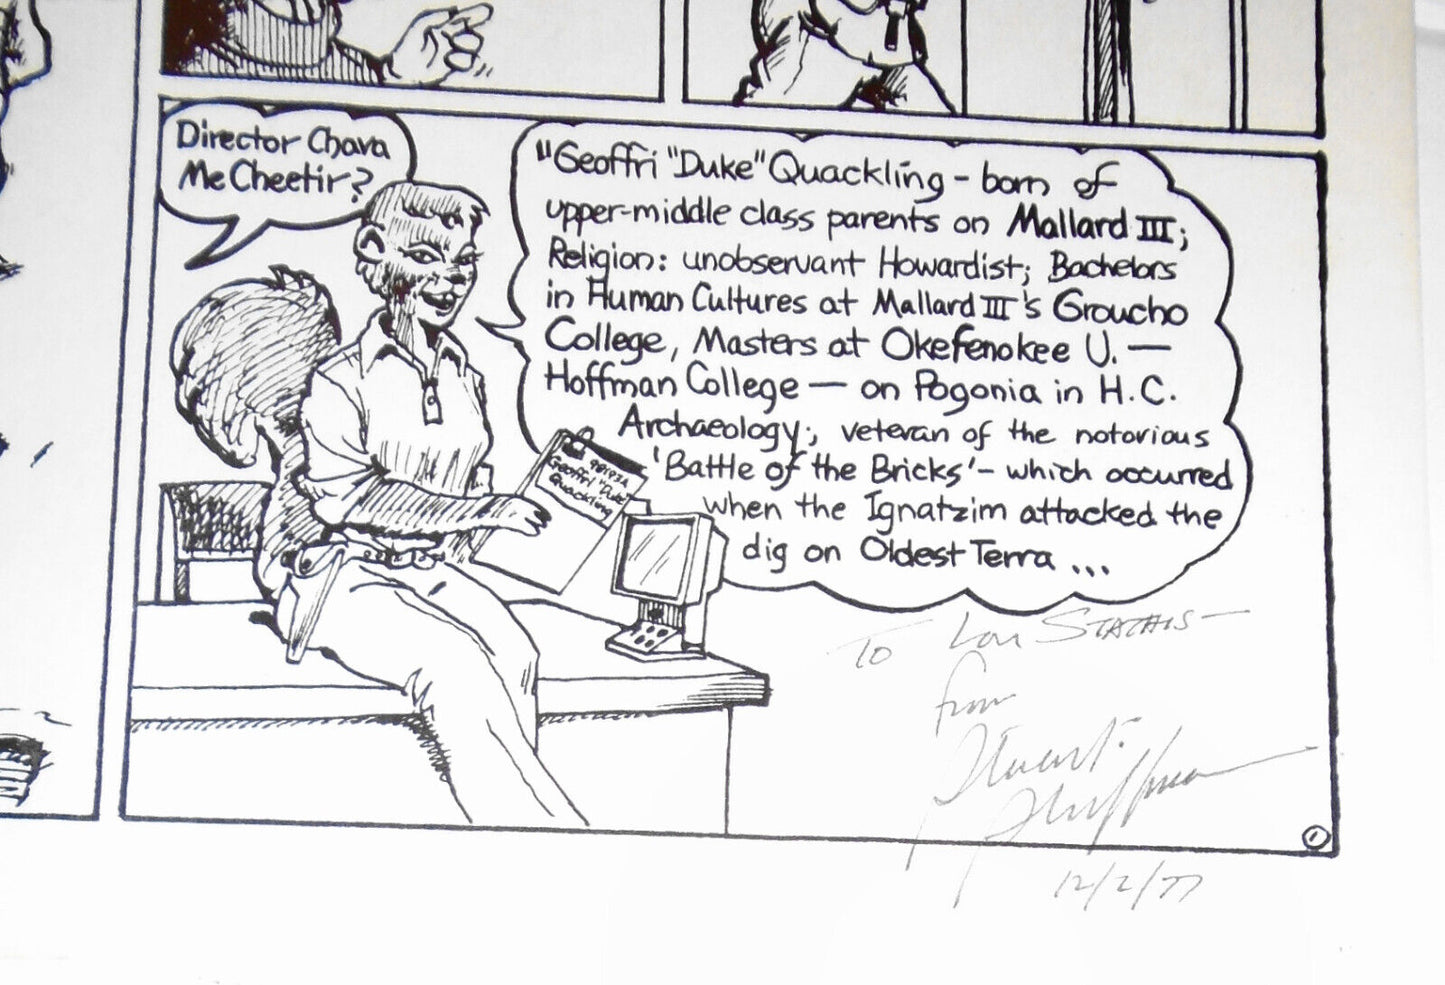 Director Chava
McCheetir?
"Geoffri "Duke" Quackling - born of
upper-middle class parents on Mallard III;
Religion: unobservant Howardist; Bachelors
in Human Cultures at Mallard III's Groucho
College, Masters at Okefenokee U. —
Hoffman College — on Pogonia in H.C.
Archaeology; veteran of the notorious
'Battle of the Bricks' - which occurred
when the Ignatzim attacked the
dig on Oldest Terra ...
98193A
Geoffri "Duke"
Quackling
To Lou Stathis —
from
Stuart
Hoffman
12/2/77
1